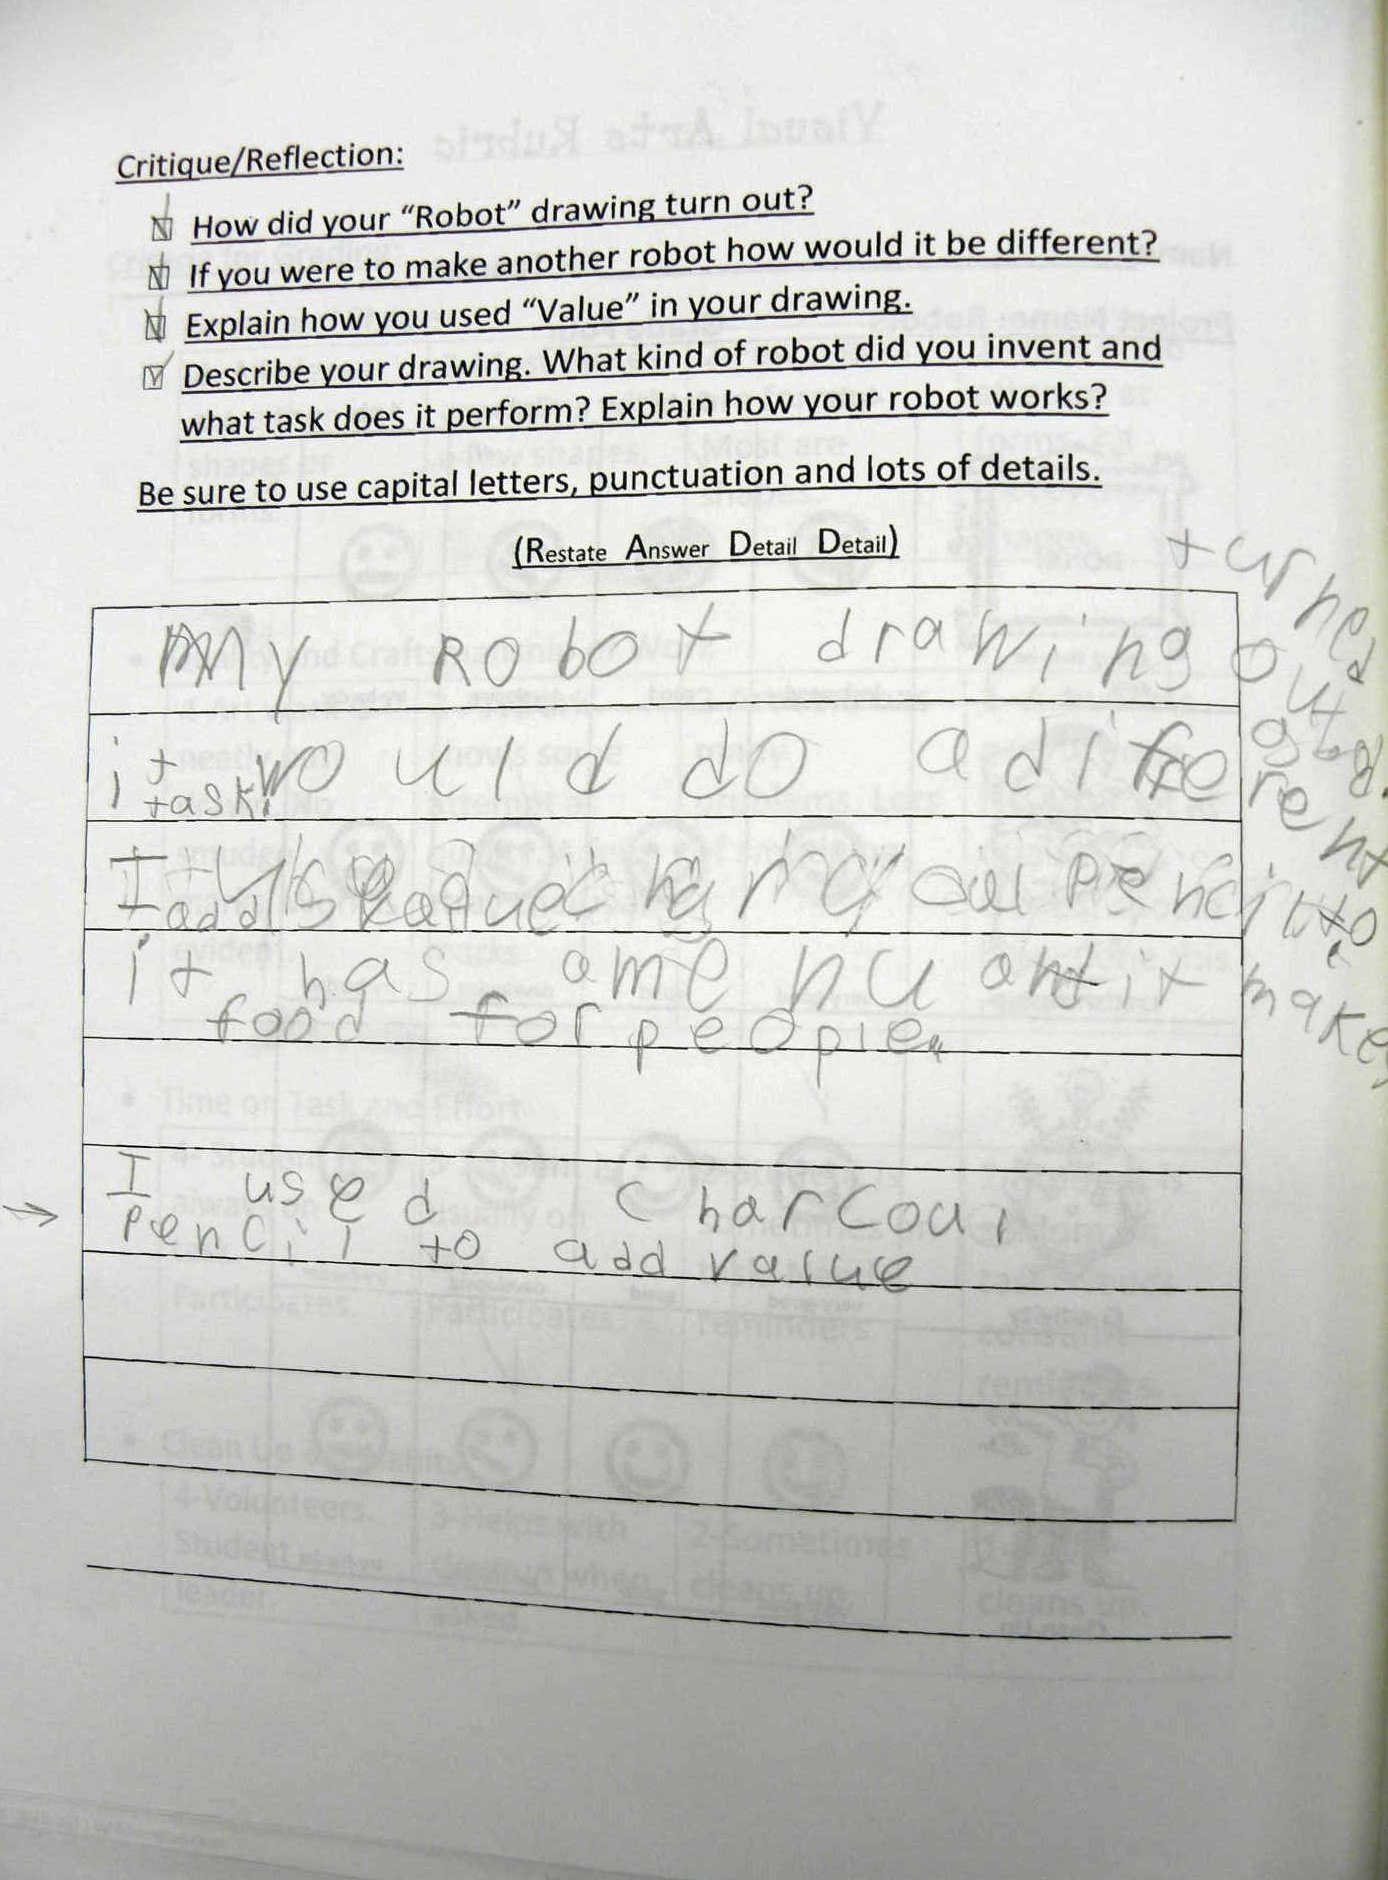 Critique/Reflection:
How did your “Robot” drawing turn out?
If you were to make another robot how would it be different?
Explain how you used “Value” in your drawing.
Describe your drawing. What kind of robot did you invent and
what task does it perform? Explain how your robot works?
Be sure to use capital letters, punctuation and lots of details.
(Restate Answer Detail Detail)
My Robot drawing turned out good.
it would do a diferent
task.
I pencil to
add value
it has a menu ont it makes
food for people.
I used charcoul
pencil to add value